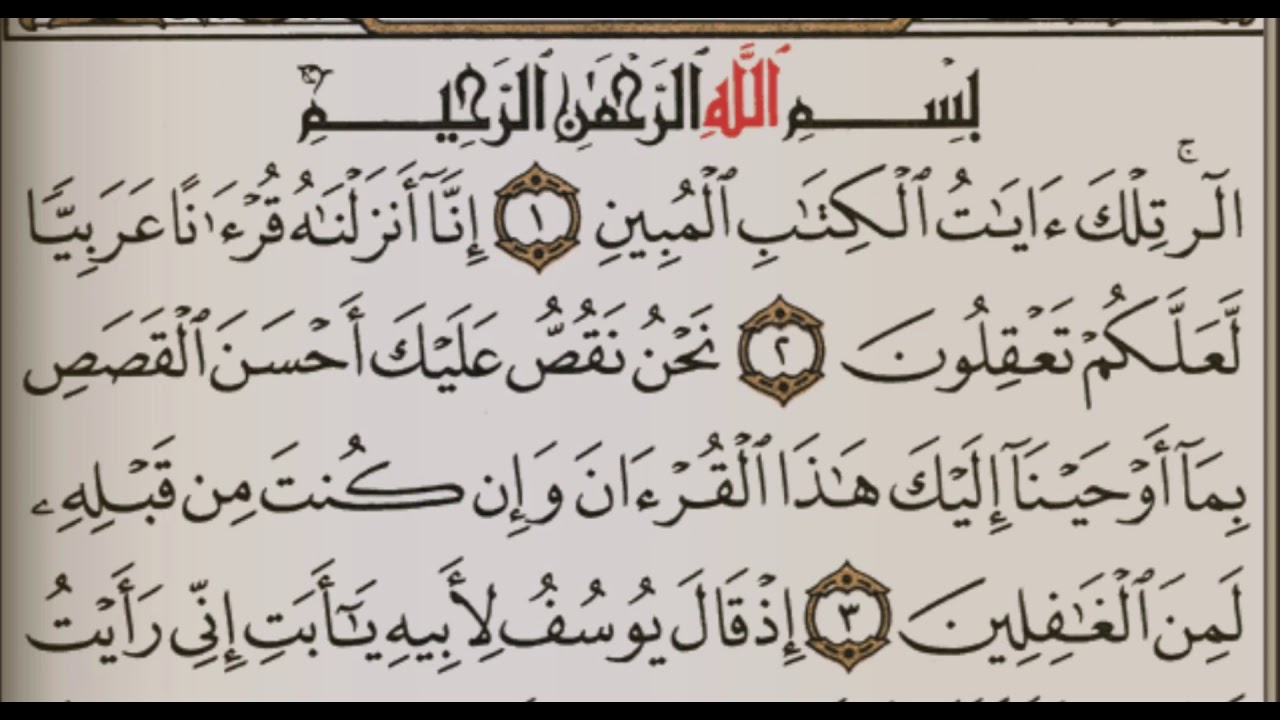 بِسْمِ ٱللَّهِ ٱلرَّحْمَٰنِ ٱلرَّحِيمِ
الٓرۚ تِلْكَ ءَايَٰتُ ٱلْكِتَٰبِ ٱلْمُبِينِ ١ إِنَّآ أَنزَلْنَٰهُ قُرْءَٰنًا عَرَبِيًّا
لَّعَلَّكُمْ تَعْقِلُونَ ٢ نَحْنُ نَقُصُّ عَلَيْكَ أَحْسَنَ ٱلْقَصَصِ
بِمَآ أَوْحَيْنَآ إِلَيْكَ هَٰذَا ٱلْقُرْءَانَ وَإِن كُنتَ مِن قَبْلِهِۦ
لَمِنَ ٱلْغَٰفِلِينَ ٣ إِذْ قَالَ يُوسُفُ لِأَبِيهِ يَٰٓأَبَتِ إِنِّى رَأَيْتُ